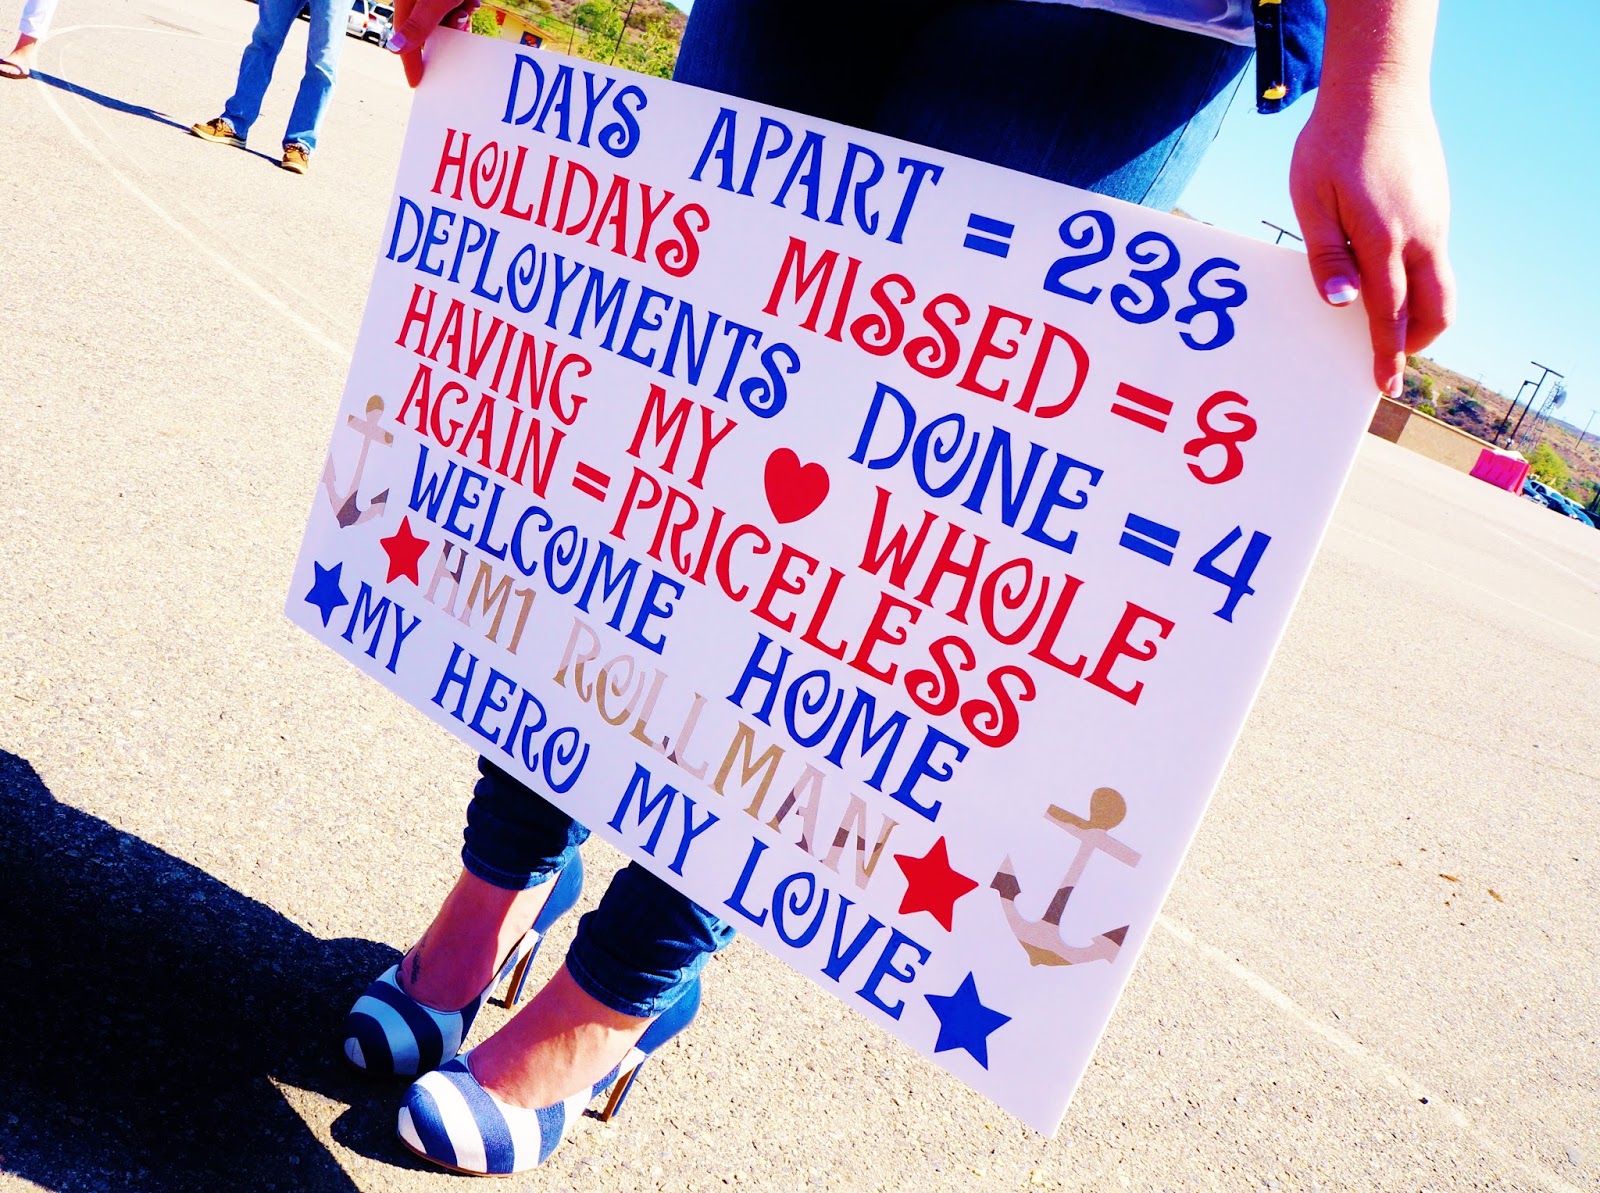 DAYS APART = 238
HOLIDAYS MISSED = 8
DEPLOYMENTS DONE = 4
HAVING MY ♥ WHOLE
AGAIN = PRICELESS
WELCOME HOME
HM1 ROLLMAN
MY HERO MY LOVE